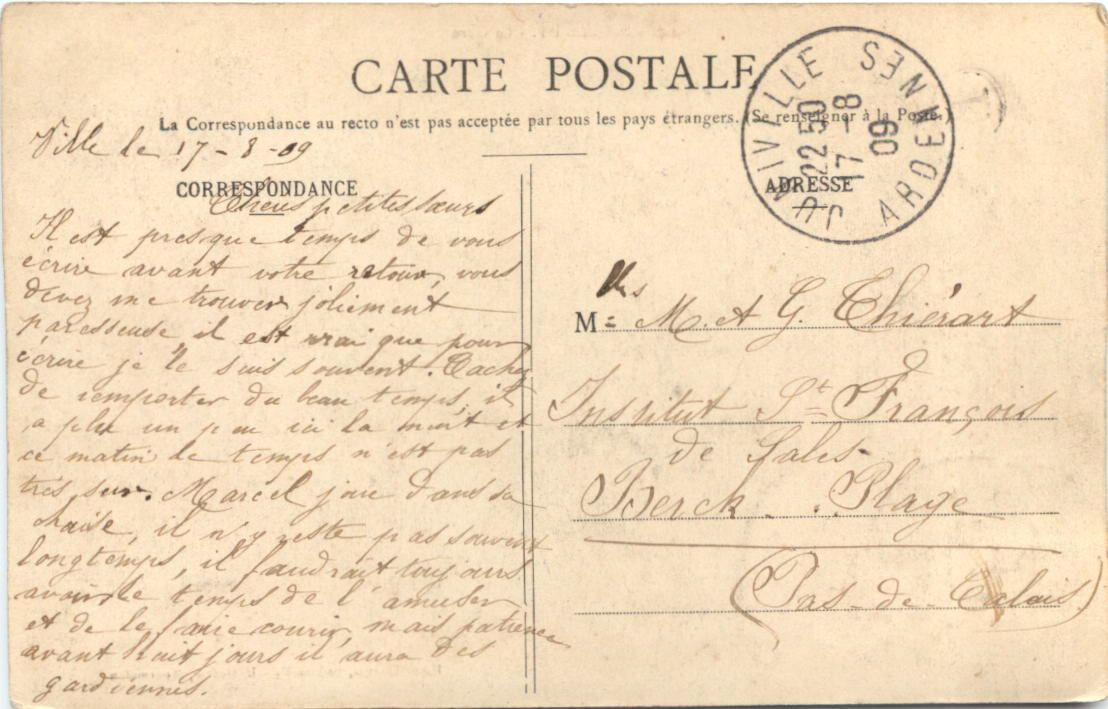 CARTE POSTALE
La Correspondance au recto n'est pas acceptée par tous les pays étrangers. (Se renseigner à la Poste.)
Ville le 17-8-09
CORRESPONDANCE
petites sœurs
Il est presque temps de vous
écrire avant votre retour, vous
devez me trouver joliement
paresseuse il est vrai que pour
écrire je le suis souvent. Tachez
de remporter du beau temps, il
a plu un peu ici la nuit et
ce matin le temps n'est pas
très sur. Marcel joue dans sa
chaise, il n'y reste pas souvent
longtemps, il faudrait toujours
avoir le temps de l'amuser
et de le faire courir, mais patience
avant huit jours il aura des
gardiennes.
JUNIVILLE ARDENNES
22 50
17 -8
09
T
ADRESSE
M lles M. et G. Thiérart
Institut St François
de Sales
Berck-Plage
(Pas-de-Calais)